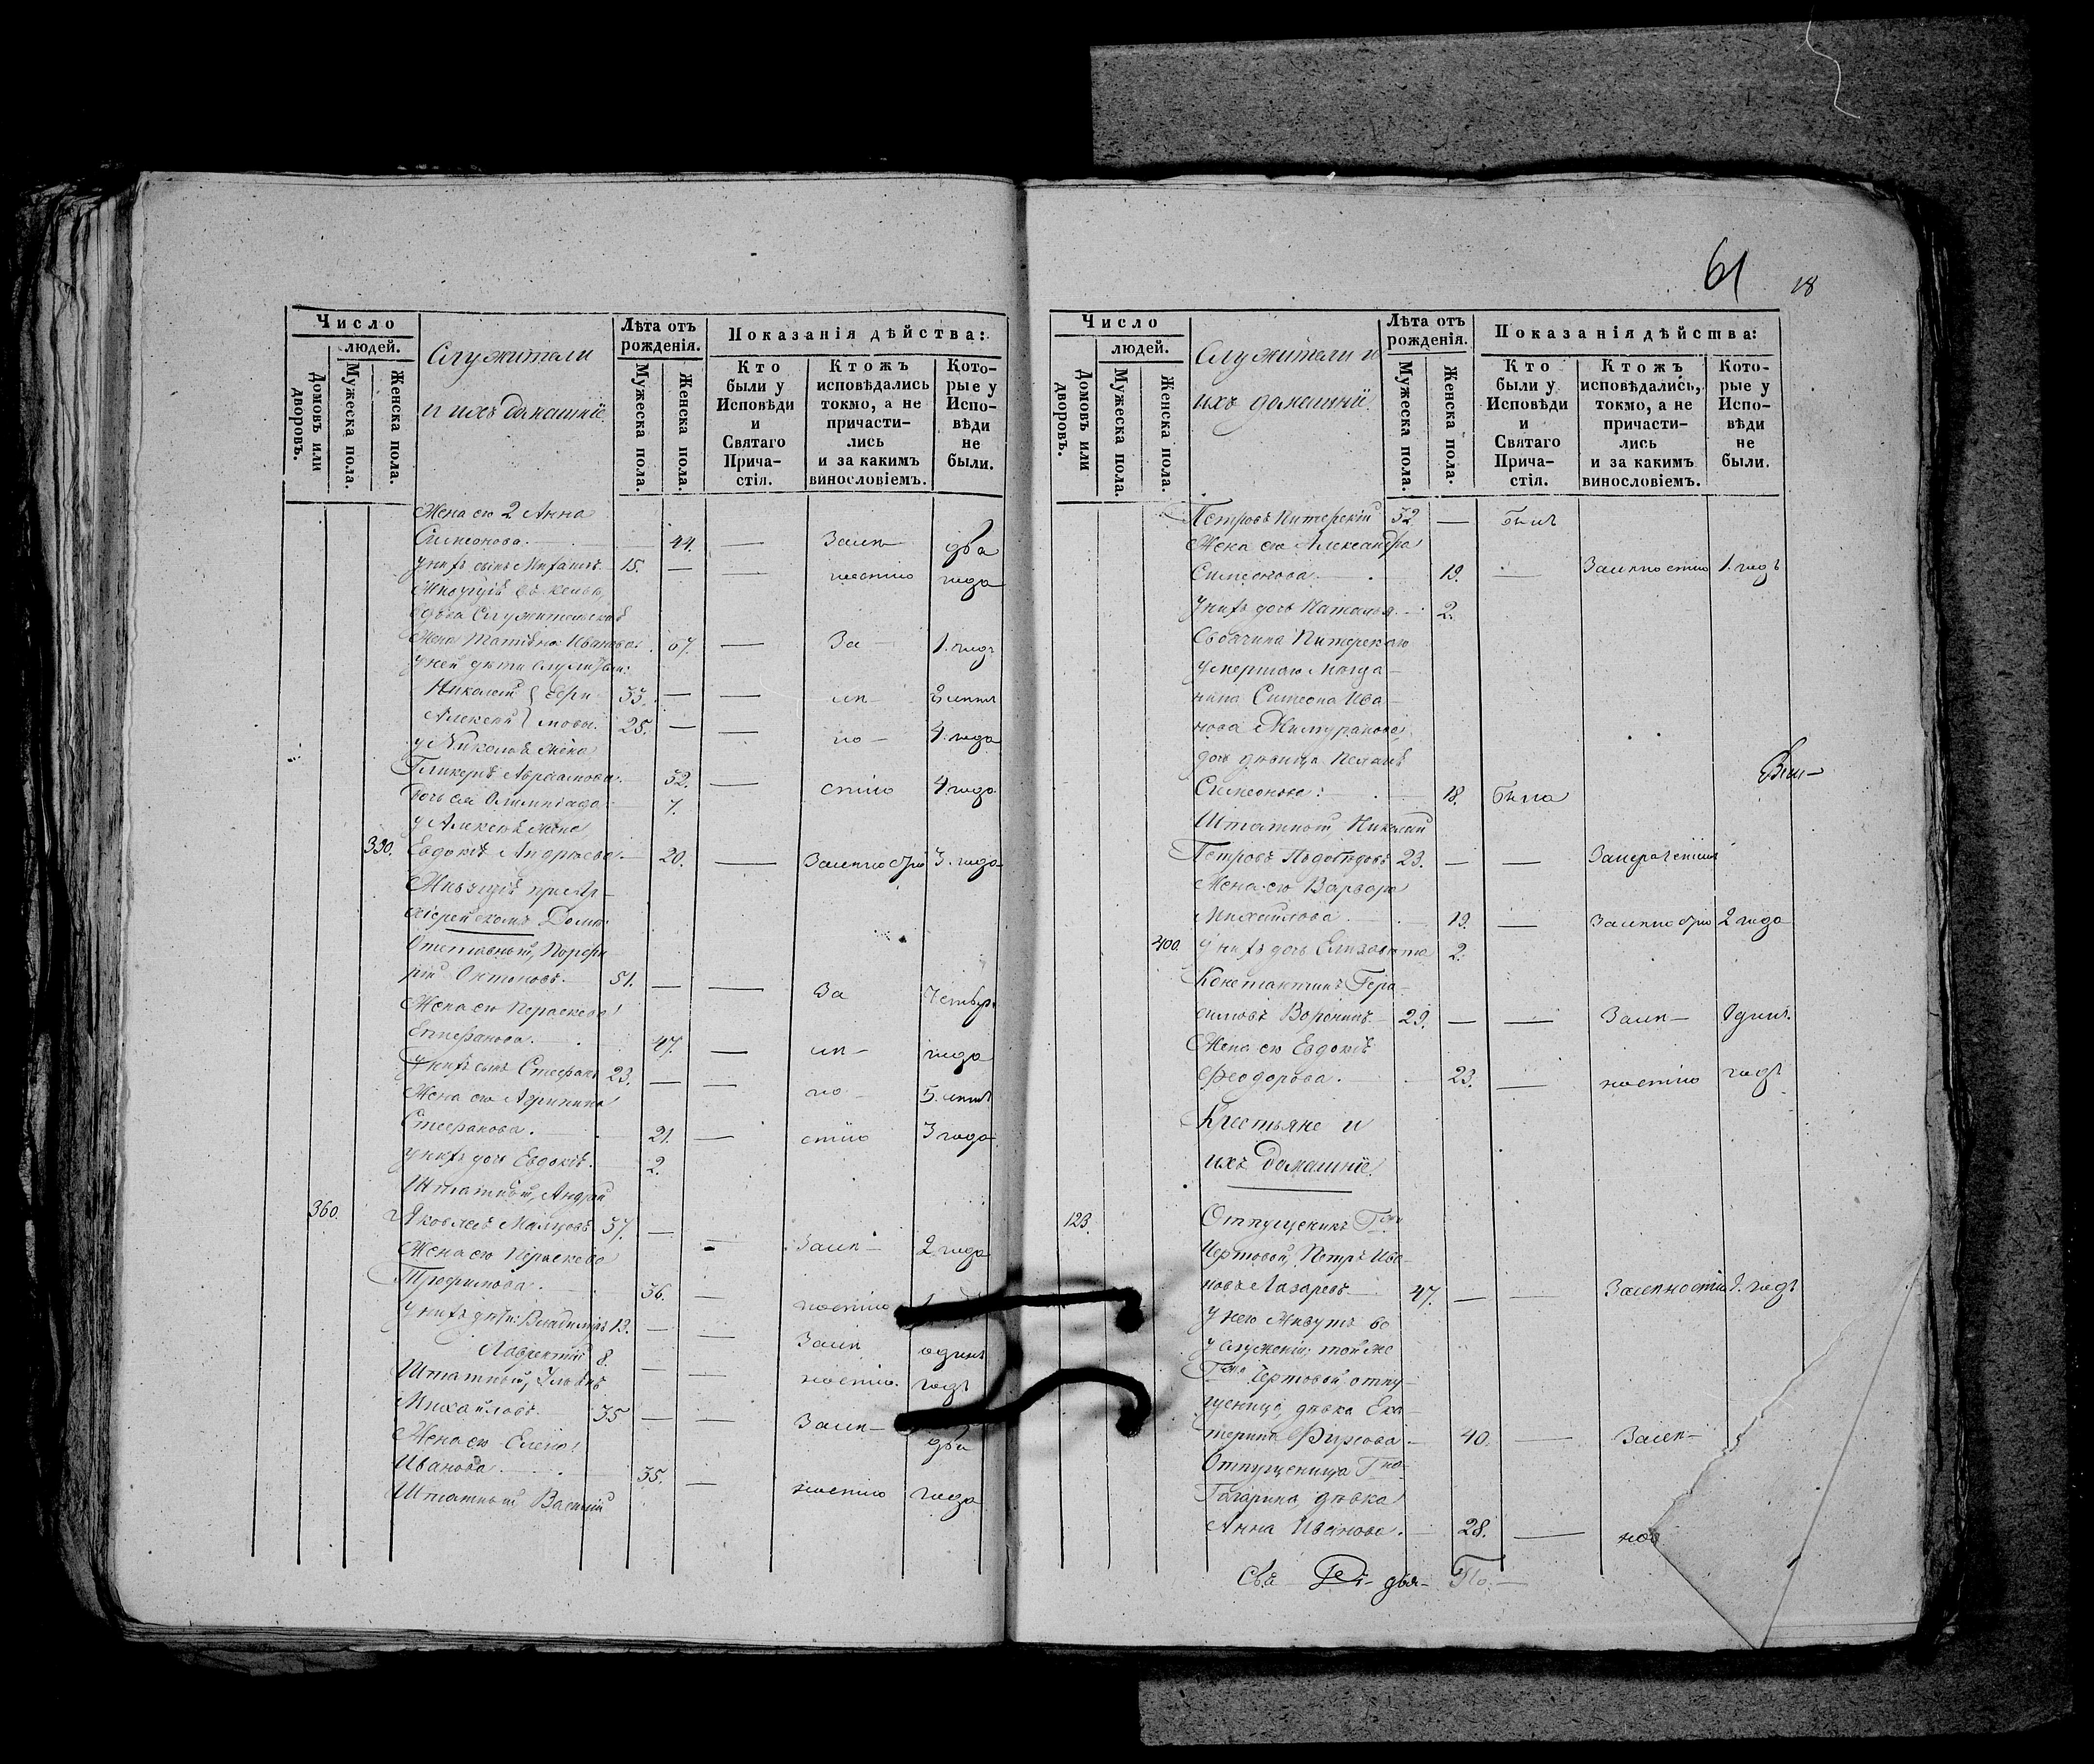 61
18
Число
людей.
Домовъ или дворовъ.
Мужеска пола.
Женска пола.
Служители
и ихъ домашніе.
Лѣта отъ
рожденія.
Мужеска пола.
Женска пола.
Показанія дѣйства:
Кто
были у
Исповѣди
и
Святаго
Прича-
стія.
Ктожъ
исповѣдались
токмо, а не
причасти-
лись
и за какимъ
винословіемъ.
Кото-
рые у
Испо-
вѣди
не
были.
Жена его 2 Анна
Симеонова. 44. — Залѣ- два
У нихъ сынъ 15. — — ностію года
Живущіе въ
Вдова Служительская
Жена Татіана Иванова. 67. — За- 1. годъ
У ней дѣти служители:
Николай 33. — — лѣ-
Алексій 25. — — но- 4. года
у Николая жена
Гликерія Авраамова. 32. — стію 4 года
Дочь ея Олимпіада 7.
у Алексія жена
390. Евдокія Андреева. 20. — Залѣностію 3. года
Живущіе при Ар-
хіерейскомъ Домѣ
Отставный, Порфи-
рій 51. — — За четыре
Жена его Параскева
Стефанова. 47. — лѣ- года
У нихъ сынъ Стефанъ 23. — — но- 5. лѣтъ
Жена его Агрипина
Стефанова. 21. — стію 3 года
У нихъ дочь Евдокія. 2.
Штатный, Андрей
360. Яковлевъ 37. — — Залѣ- 2 года
Жена его Параскева
Трофимова. 36. — ностію
У нихъ дѣти: Владимиръ 13. — — Залѣ одинъ
Лаврентій 8. — — ностію. годъ
Штатный,
Михайловъ. 35 — — Залѣ- два
Жена его Елена
Иванова. 35. — ностію года
Штатный Василій
Число
людей.
Домовъ или дворовъ.
Мужеска пола.
Женска пола.
Служители и
ихъ домашніе.
Лѣта отъ
рожденія.
Мужеска пола.
Женска пола.
Показанія дѣйства:
Кто
были у
Исповѣди
и
Святаго
Прича-
стія.
Ктожъ
исповѣдались,
токмо, а не
причасти-
лись
и за какимъ
винословіемъ.
Кото-
рые у
Испо-
вѣди
не
были.
Петровъ Питерскій 32. — Былъ
Жена его Александра
Симеонова. 19. — Залѣностію 1. годъ
У нихъ дочь Наталья. 2.
Питерскаго
умершаго
Симеона Ива-
нова
дочь дѣвица
Симеонова: 18. Была
Штатный Николай
Петровъ 23. — —
Жена его Варвара
Михайлова. 19. — Залѣностію 2 года
400. У нихъ дочь Елизавета 2.
Константинъ Гера-
симовъ Воронинъ 29. — — Залѣ- одинъ.
Жена его Евдокія
Феодорова. 23. — ностію годъ
Крестьяне и
ихъ домашніе.
123. Отпущеникъ Гжи
Чертовой, Петръ Ива-
новъ Лазаревъ. 47. — — Залѣностію 1. годъ
У него живутъ во
услуженіи: той же
Гжи Чертовой отпу-
щеница, дѣвка Ека-
терина Фирсова. 40. — Залѣ-
Отпущеница Гна
Гагарина, дѣвка
Анна Иванова. 28. — нос